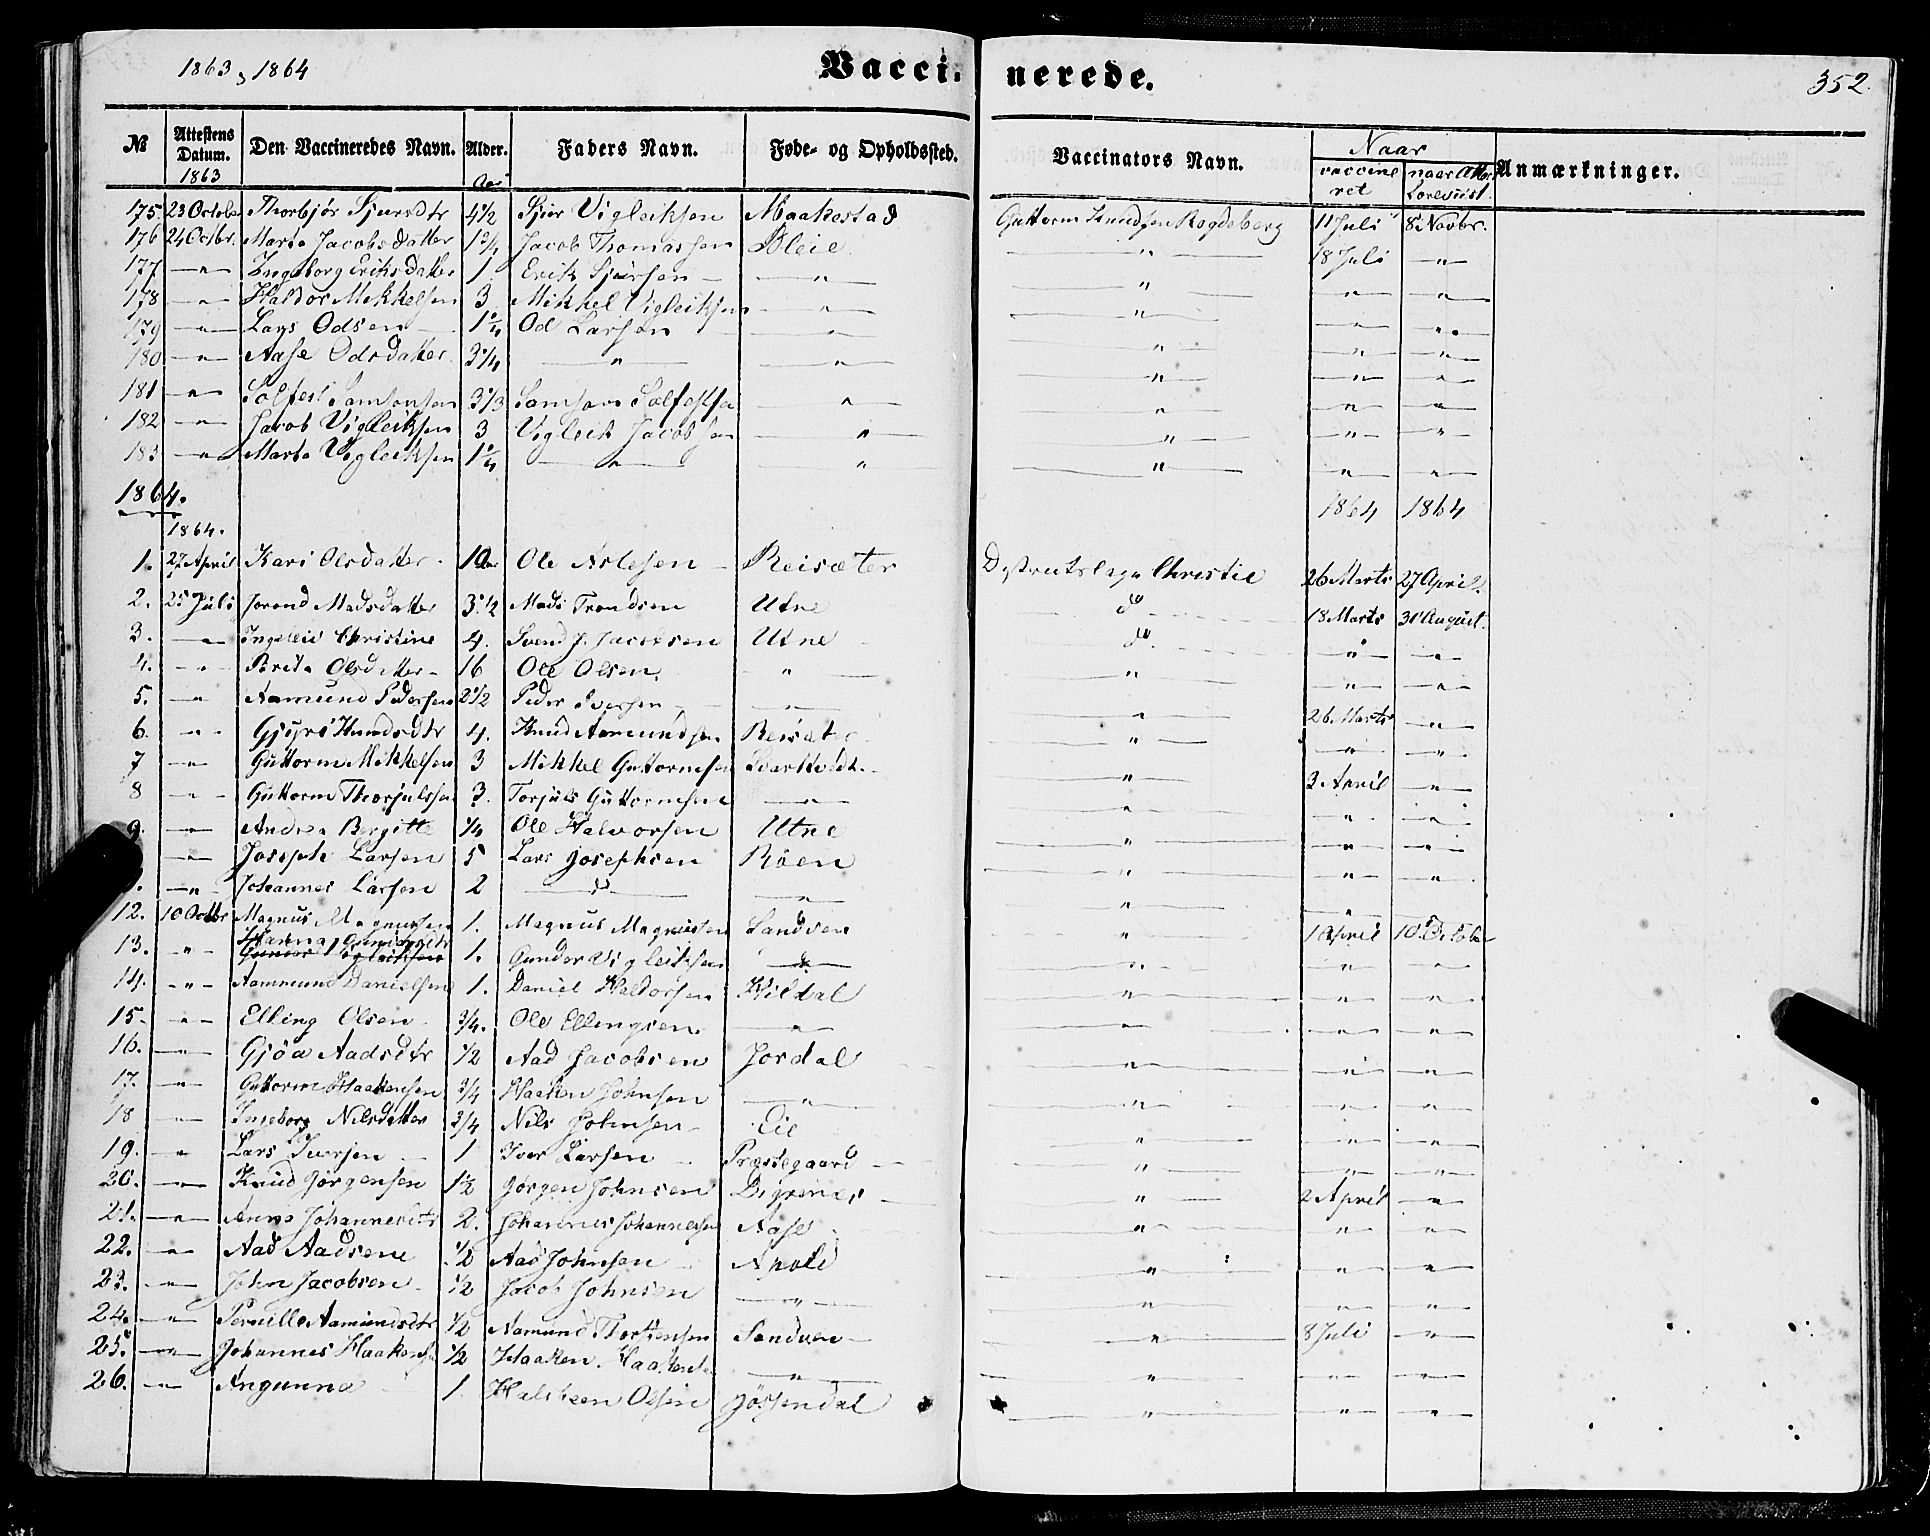 1863, 1864 Vaccinerede. 352.
№ Attestens Datum. Den Vaccineredes Navn. Alder. Faders Navn. Føde- og Opholdssted. Vaccinators Navn. Naar Anmærkninger.
1863 Aar vaccineret naar Atte
175. 23 October Thorbjør Sjursdtr 4 1/2 Sjur Vigleiksen Maakestad Guttorm Knudsen Rogdeberg 11 Juli 8 Novbr.
176 24 Octbr. Marta Jacobsdatter 1 3/4 Jacob Thomassen Bleie " 18 Juli "
177 " Ingeborg Eriksdatter 1 Erik Sjursen " " " "
178 " Haldor Mikkelsen 3 Mikkel Vigleiksen " " " "
179 " Lars Odsen 1 1/4 Od Larsen " " " "
180 " Aase Odsdatter 3 1/4 " " " " "
181 " Solfest Samsonsen 3 1/3 Samson Solfestsen " " " "
182 " Jacob Vigleiksen 3 Vigleik Jacobsen " " " "
183 " Marta Vigleiksen 1 1/4 " " " " "
1864. 1864 1864
1864.
1. 27 April Kari Olsdatter 10 Ole Aslesen Reisæter Distrectslæge Christie 26 Marts 27 April
2. 25 Juli Jorond Madsdatter 3 1/2 Mads Trondsen Utne do 18 Marts 31 August
3. " Ingeleiv Christine 4. Svend J. Jacobsen Utne do " "
4. " Brita Olsdatter 16 Ole Olsen " " " "
5. " Aamund Pedersen 2 1/2 Peder Iversen " " 26 Marts "
6. " Gjyri Knudsdtr 4. Knud Aamundsen Reisæter " " "
7 " Guttorm Mikkelsen 3 Mikkel Guttormsen " 3 April "
8 " Guttorm Thorjulssen 3. Torjuls Guttormsen " " " "
9. " Andrea Bergitte 1/4 Ole Halvorsen Utne " " "
" Joseph Larsen 5 Lars Josephsen Röen " " "
" Johannes Larsen 2 do " " " "
12. 10 Octbr Magnus Magnussen 1. Magnus Magnussen Sandven " 1 April 10 October
13. " Hanna Gundersdtr 1. Gunder Vigleiksen " " " "
Gunder Vigleiksen
14. " Aammund Danielsen 1. Daniel Haldorsen Hildal " " "
15. " Elling Olsen 3/4. Ole Ellingsen " " " "
16. " Gjöa Aadsdtr 1/2 Aad Jacobsen Jordal " " "
17. " Guttorm Haakensen 3/4 Haaken Johnsen " " " "
18 " Ingeborg Nilsdatter 3/4 Nils Johnsen Eie " " "
19. " Lars Iversen 1 Iver Larsen Præstegaard " " "
20. " Knud Jørgensen 1 1/2 Jørgen Johnsen Digrenes " 2 April "
21. " Anna Johannesdtr 2. Johannes Johannessen Aase " " "
22. " Aad Aadsene 1/2 Aad Johnsen Apold " " "
23. " John Jacobsen 1/2 Jacob Johnsen " " " "
24. " Pernille Aamundsdtr 1/2 Aamund Thorstensen Sandven " 8 Juli "
25. " Johannes Haakensen 1/2 Haaken Haakensen " " " "
26. " Angunna 1. Halsteen Olsen Jössendal " " "